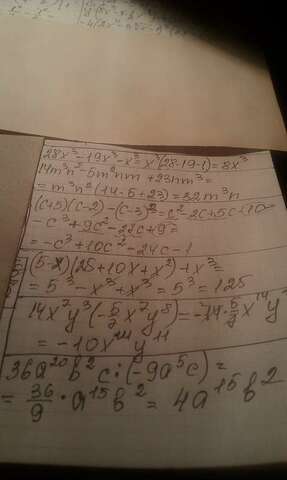 28x³-19x³-x³=x³(28-19-1)=8x³
14m³n²-5m²nm+23nm³=
=m³n²(14-5+23)=32m³n
(c+5)(c-2)-(c-3)³=c²-2c+5c-10-
-c³+9c²-27c+9=
=-c³+10c²-24c-1
(5-x)(25+10x+x²)+x³=
=5³-x³+x³=5³=125
14x⁷y³(-5/7x⁷y⁸)=-14·5/7x¹⁴y
=-10x¹⁴y¹¹
36a²⁰b²c:(-9a⁵c)=
=36/9·a¹⁵b²=4a¹⁵b²